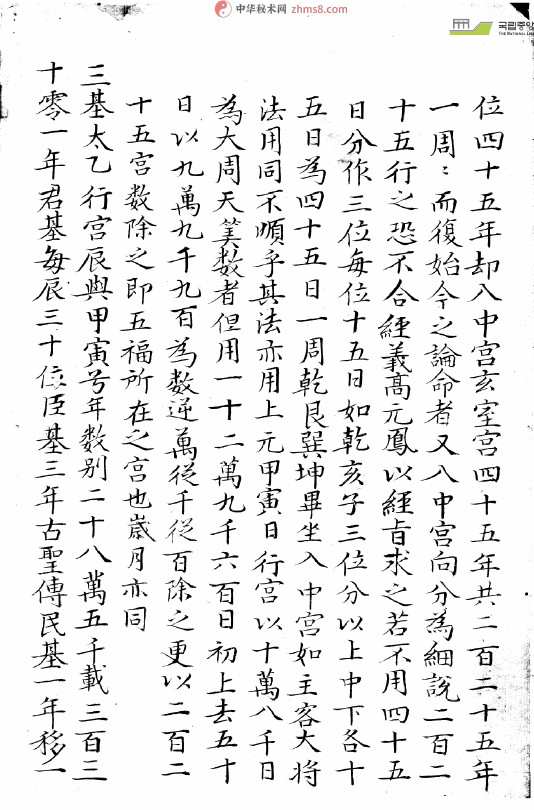 中华秘术网 zhms8.com
국립중앙
THE NATIONAL LIB
位四十五年却入中宫玄室宫四十五年共二百二十五年
一周〻而復始今之論命者又入中宫向分為細說二百二
十五行之恐不合經義高元鳳以經旨求之若不用四十五
日分作三位每位十五日如乾亥子三位分以上中下各十
五日為四十五日一周乾艮巽坤畢坐入中宫如主客大将
法用同不順乎其法亦用上元甲寅日行宫以十萬八千日
為大周天筭数者但用一十二萬九千六百日初上去五十
日以九萬九千九百為数逆萬従千従百除之更以二百二
十五宫数除之即五福所在之宫也歲月亦同
三基太乙行宫辰與甲寅号年数别二十八萬五千載三百三
十零一年君基每辰三十位臣基三年古聖傳民基一年移一